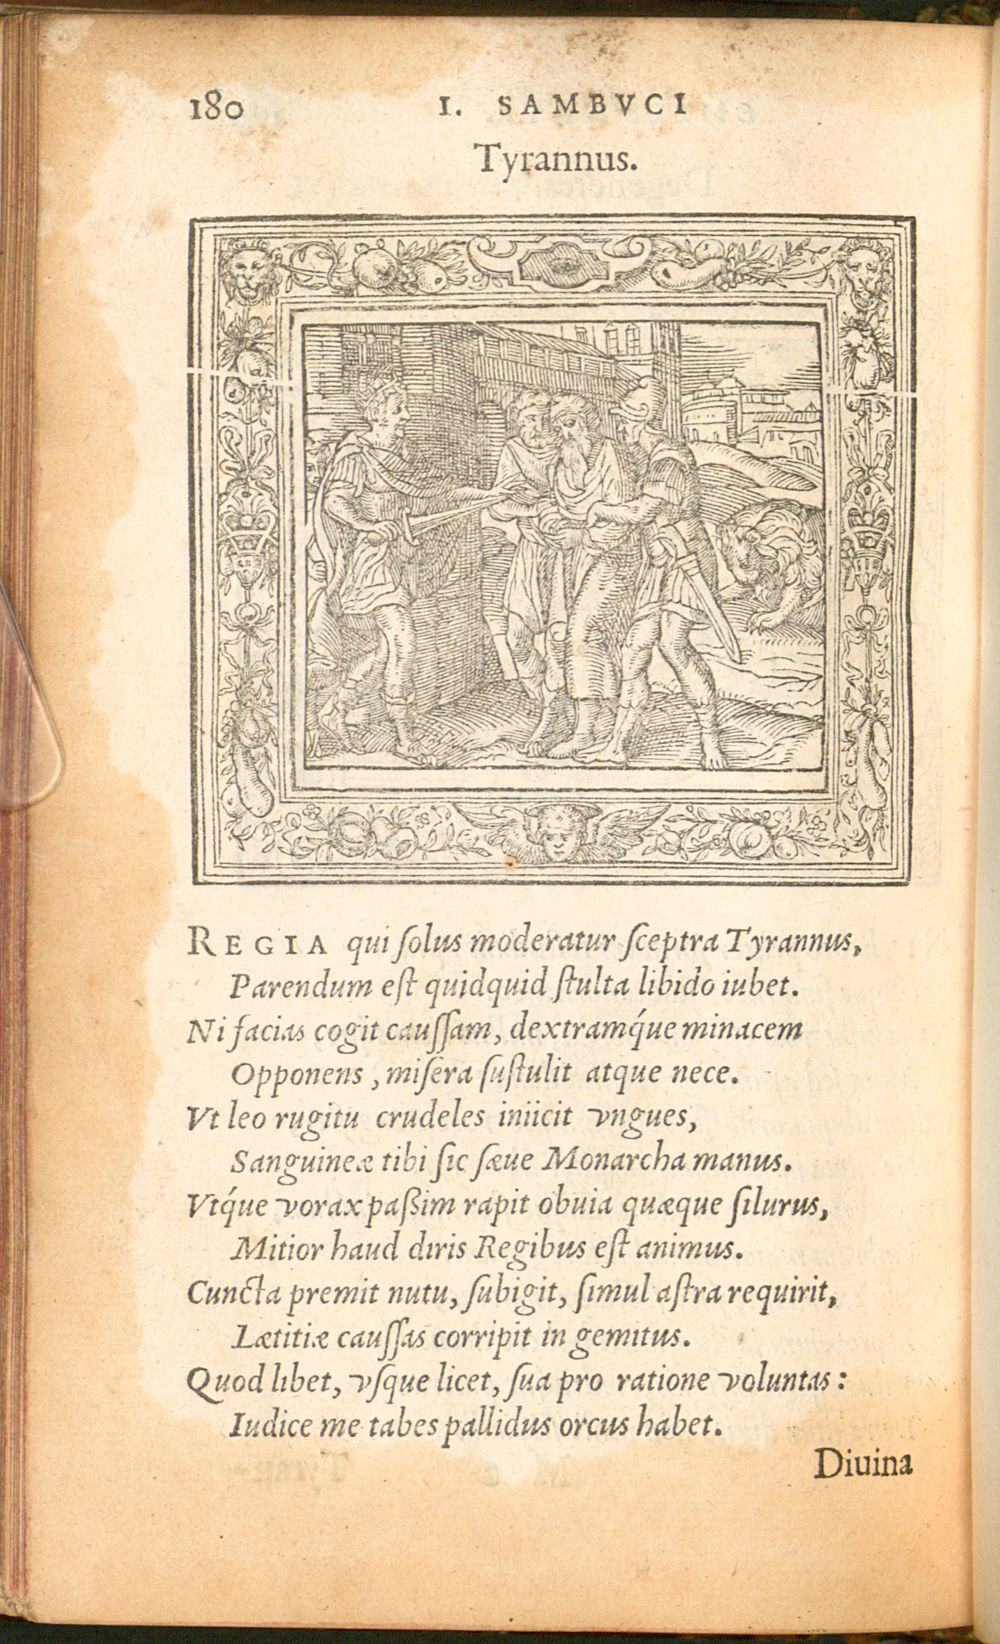 180 I. SAMBVCI
Tyrannus.
REGIA qui ſolus moderatur ſceptra Tyrannus,
Parendum eſt quidquid ſtulta libido iubet.
Ni facias cogit cauſſam, dextramq́ue minacem
Opponens, miſera ſuſtulit atque nece.
Vt leo rugitu crudeles iniicit vngues,
Sanguineæ tibi ſic ſæue Monarcha manus.
Vtq́ue vorax paßim rapit obuia quæque ſilurus,
Mitior haud diris Regibus eſt animus.
Cuncta premit nutu, ſubigit, ſimul aſtra requirit,
Lætitiæ cauſſas corripit in gemitus.
Quod libet, vſque licet, ſua pro ratione voluntas:
Iudice me tabes pallidus orcus habet.
Diuina